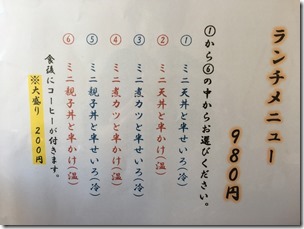 ランチメニュー
９８０円
①から⑥の中からお選びください。
① ミニ天丼と半せいろ(冷)
② ミニ天丼と半かけ(温)
③ ミニ煮カツと半せいろ(冷)
④ ミニ煮カツと半かけ(温)
⑤ ミニ親子丼と半せいろ(冷)
⑥ ミニ親子丼と半かけ(温)
食後にコーヒーが付きます。
※大盛り ２００円